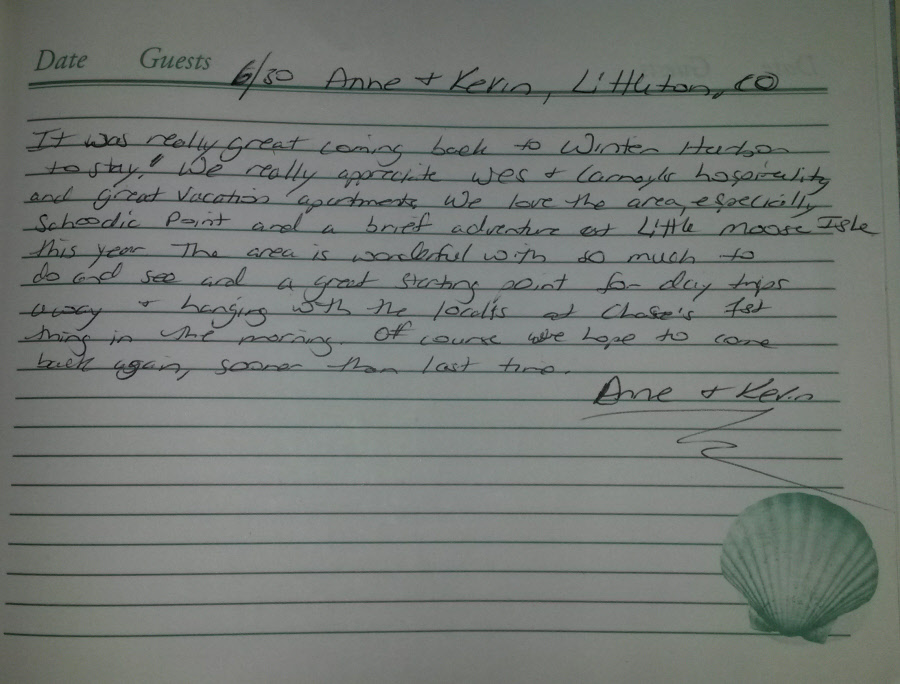 Date Guests 6/30 Anne + Kevin, Littleton, CO
It was really great coming back to Winter Harbor
to stay! We really appreciate Wes + hospitality
and great vacation apartments. We love the area, especially
Schoodic Point and a brief adventure at Little Moose Isle
this year. The area is wonderful with so much to
do and see and a great starting point for day trips
away + hanging with the locals at Chase's 1st
thing in the morning. Of course we hope to come
back again, sooner than last time.
Anne + Kevin